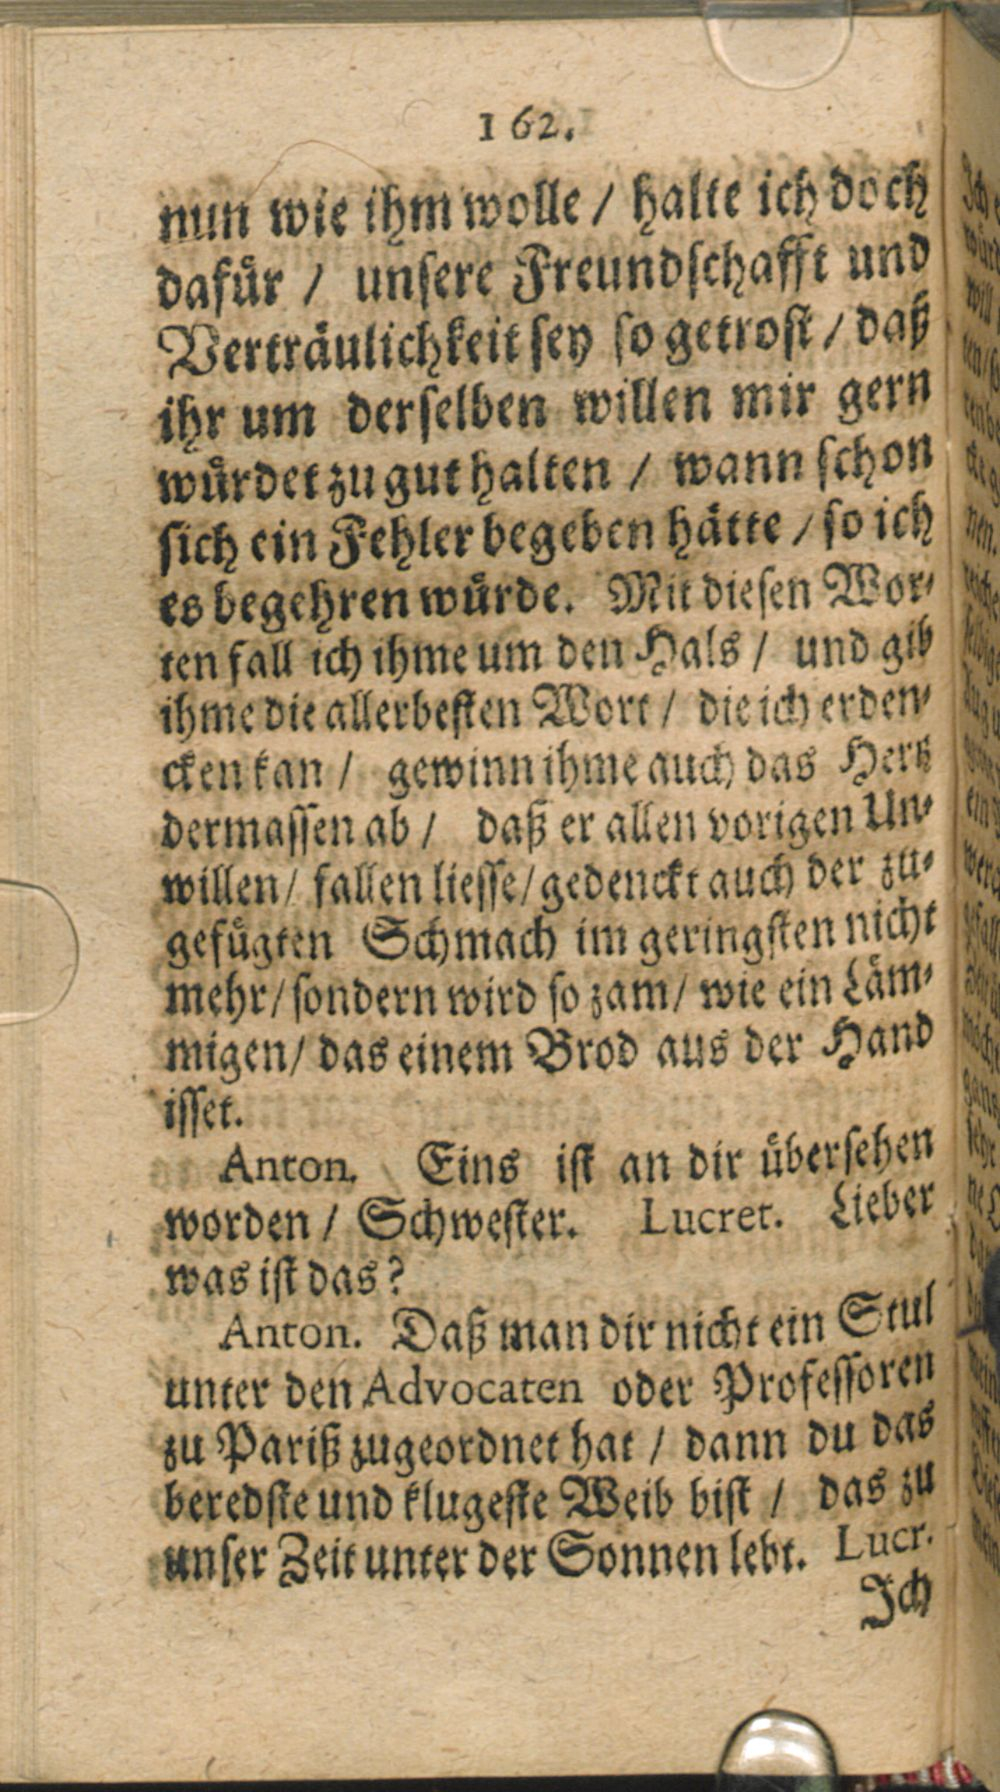 162.
nun wie ihm wolle / halte ich doch
dafür / unsere Freundschafft und
Verträulichkeit sey so getrost / daß
ihr um derselben willen mir gern
würdet zu gut halten / wann schon
sich ein Fehler begeben hätte / so ich
es begehren würde. Mit diesen Wor-
ten fall ich ihme um den Hals / und gib
ihme die allerbesten Wort / die ich erden-
cken kan / gewinn ihme auch das Hertz
dermassen ab / daß er allen vorigen Un-
willen / fallen liesse / gedenckt auch der zu-
gefügten Schmach im geringsten nicht
mehr / sondern wird so zam / wie ein Läm-
migen / das einem Brod aus der Hand
isset.
Anton. Eins ist an dir übersehen
worden / Schwester. Lucret. Lieber
was ist das?
Anton. Daß man dir nicht ein Stul
unter den Advocaten oder Professoren
zu Pariß zugeordnet hat / dann du das
beredste und klugeste Weib bist / das zu
unser Zeit unter der Sonnen lebt. Lucr.
Ich